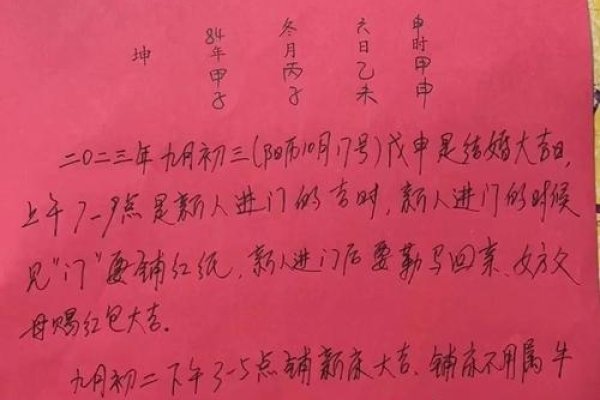 坤
84年甲子
冬月丙子
六日乙未
申时甲申
二〇二三年九月初三(阳历10月17号)戊申是结婚大吉日,
上午7-9点是新人进门的吉时,新人进门的时候
见"门"要铺红纸,新人进门后要勒马回亲、女方父
母赐红包大吉。
九月初二下午3-5点铺新床大吉、铺床不用属牛